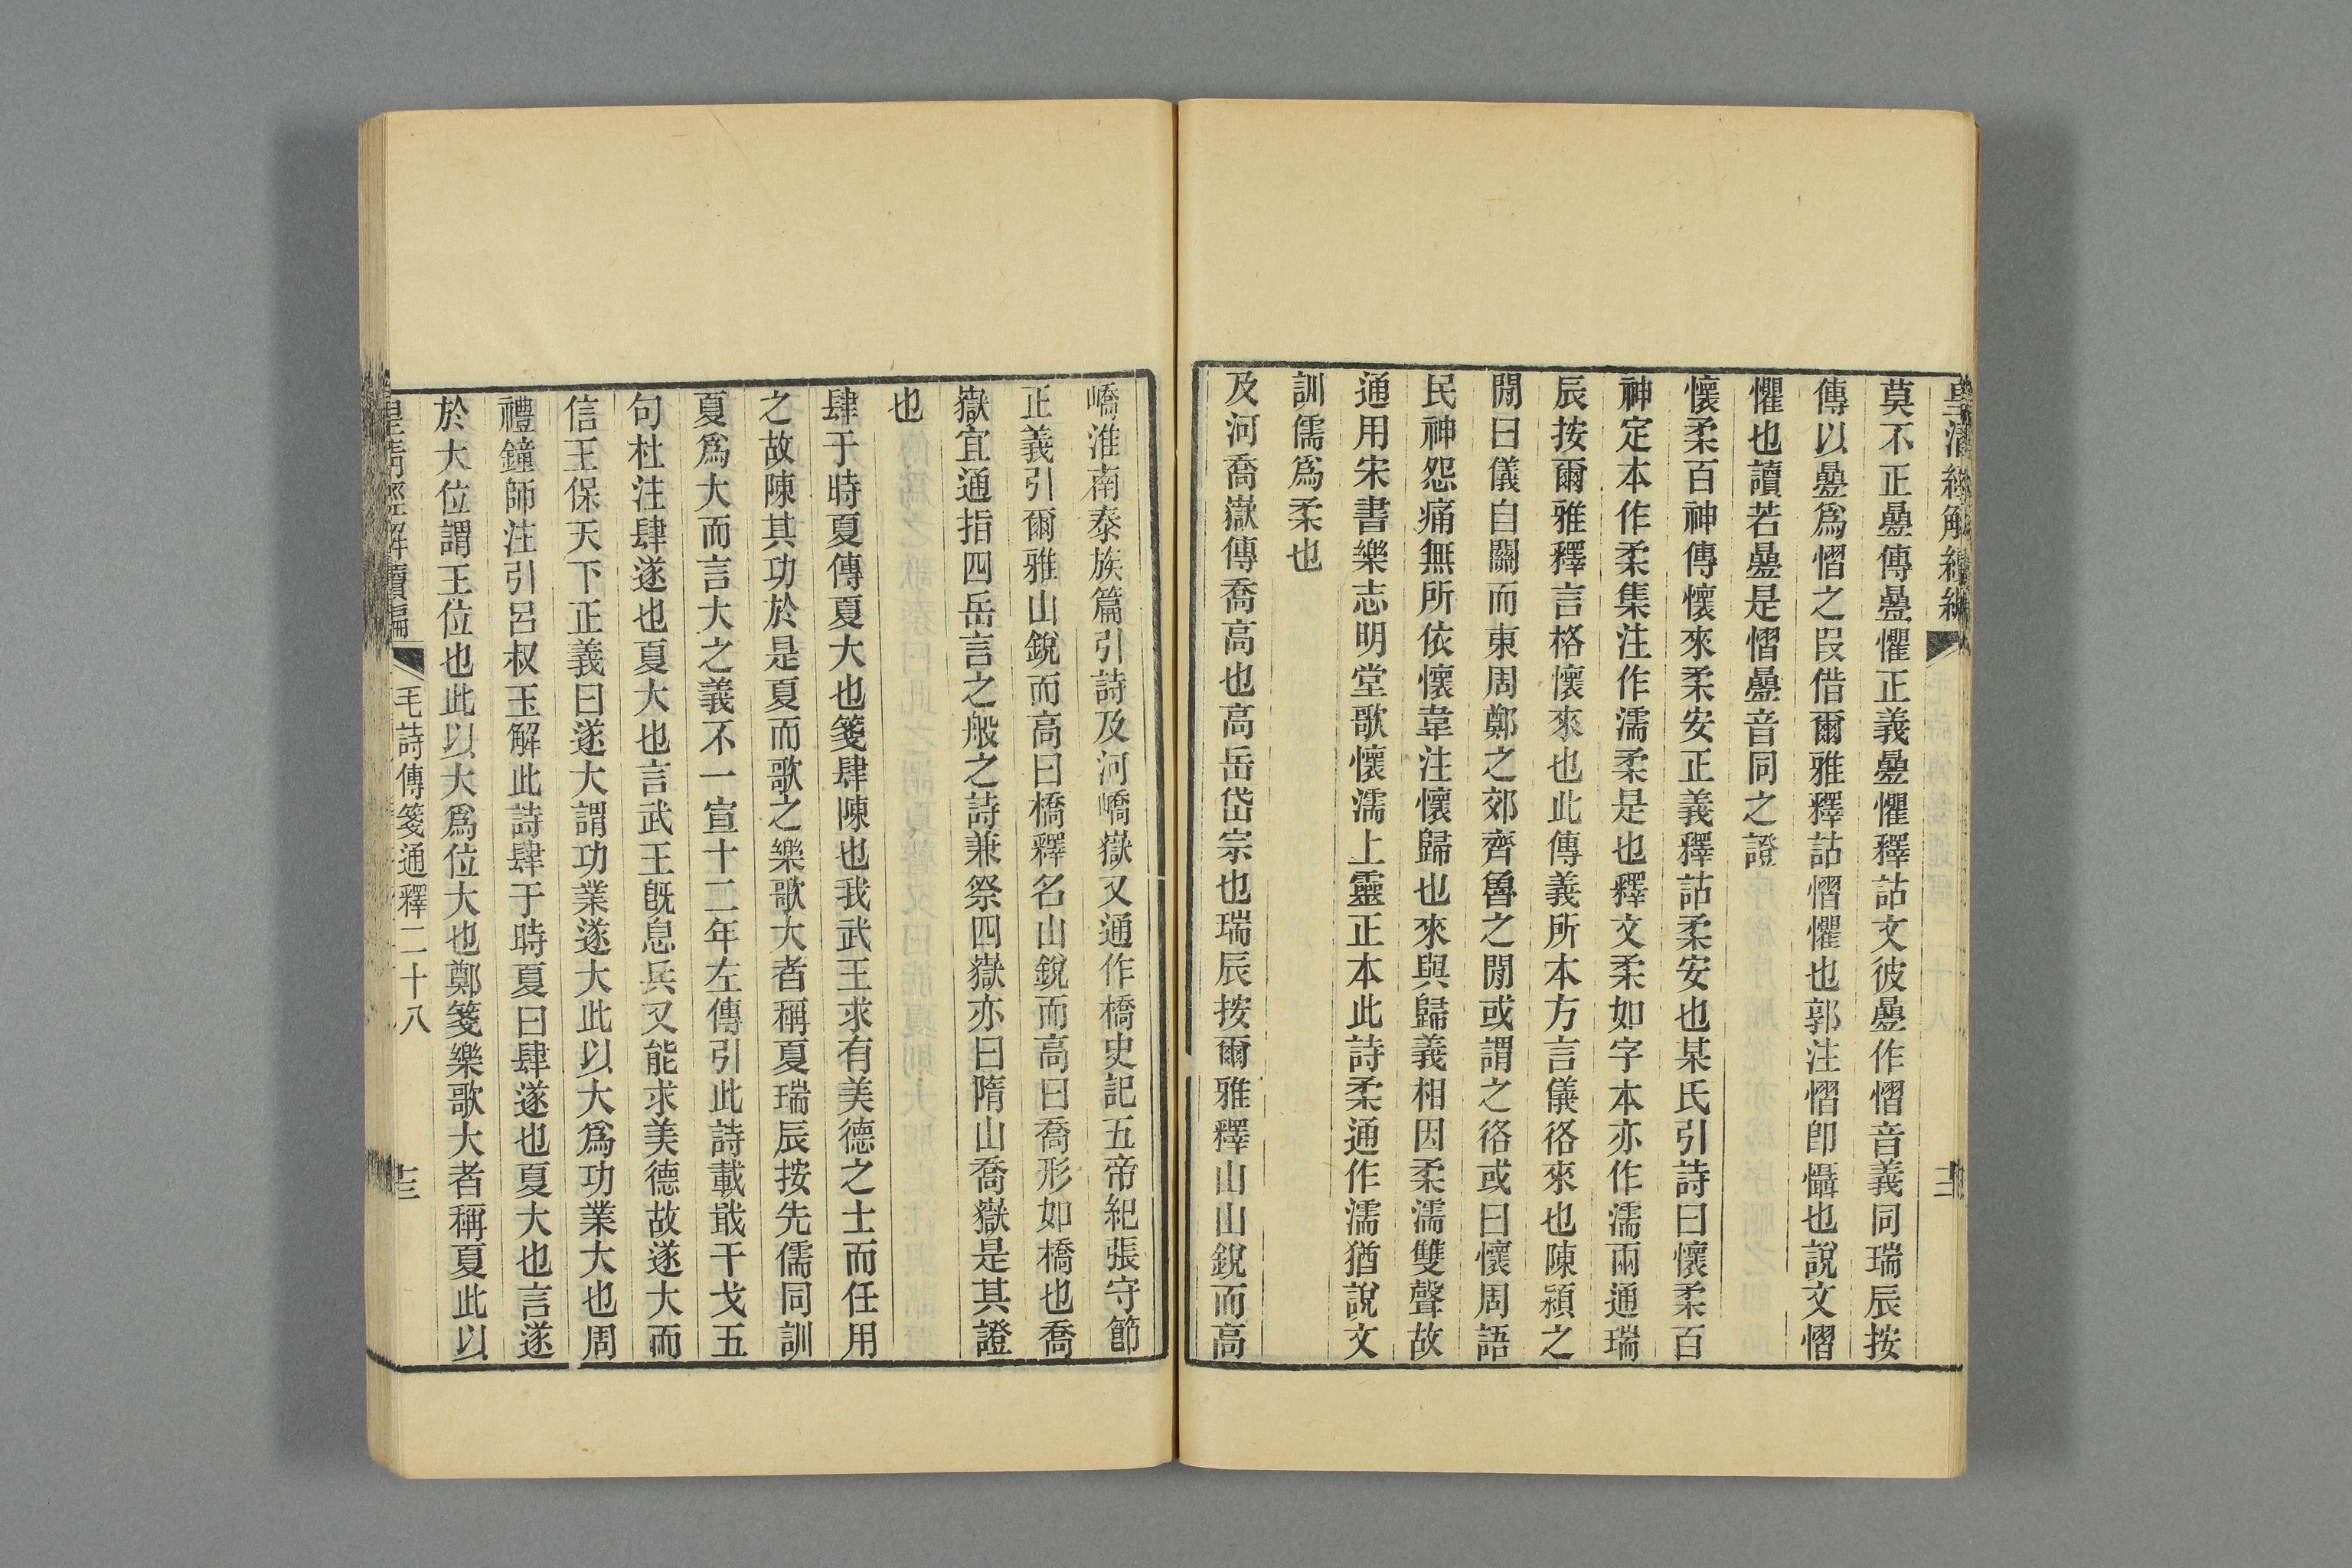 皇清經解續編
莫不正疉傳疉懼正義疉懼釋詁文彼疉作慴音義同瑞辰按
傳以疉爲慴之叚借爾雅釋詁慴懼也郭注慴卽懾也說文慴
懼也讀若疉是慴疉音同之證
懷柔百神傳懷來柔安正義釋詁柔安也某氏引詩曰懷柔百
神定本作柔集注作濡柔是也釋文柔如字本亦作濡兩通瑞
辰按爾雅釋言格懷來也此傳義所本方言儀𢓜來也陳潁之
閒曰儀自關而東周鄭之郊齊魯之閒或謂之𢓜或曰懷周語
民神怨痛無所依懷韋注懷歸也來與歸義相因柔濡雙聲故
通用宋書樂志明堂歌懷濡上靈正本此詩柔通作濡猶說文
訓儒爲柔也
及河喬嶽傳喬高也高岳岱宗也瑞辰按爾雅釋山山銳而高
嶠淮南泰族篇引詩及河嶠嶽又通作橋史記五帝紀張守節
正義引爾雅山銳而高曰橋釋名山銳而高曰喬形如橋也喬
嶽宜通指四岳言之般之詩兼祭四嶽亦曰隋山喬嶽是其證
也
肆于時夏傳夏大也箋肆陳也我武王求有美德之士而任用
之故陳其功於是夏而歌之樂歌大者稱夏瑞辰按先儒同訓
夏爲大而言大之義不一宣十二年左傳引此詩載戢干戈五
句杜注肆遂也夏大也言武王旣息兵又能求美德故遂大而
信王保天下正義曰遂大謂功業遂大此以大爲功業大也周
禮鐘師注引呂叔玉解此詩肆于時夏曰肆遂也夏大也言遂
於大位謂王位也此以大爲位大也鄭箋樂歌大者稱夏此以
皇清經解續編
毛詩傳箋通釋二十八
十三